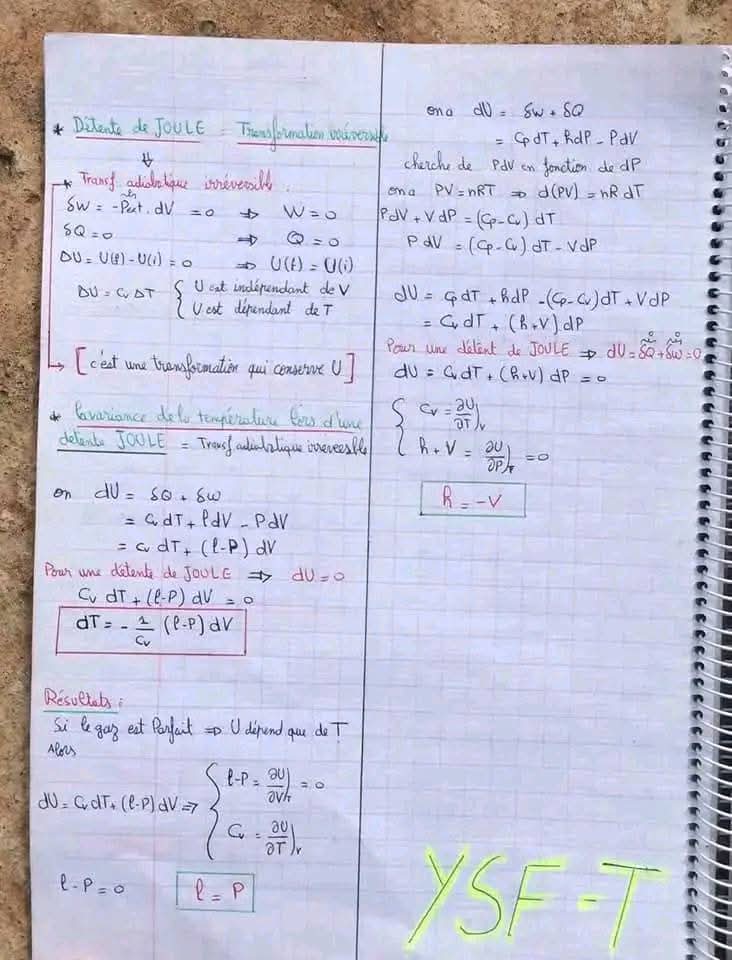 * Détente de JOULE = Transformation irréversible
⇓
* Transf adiabatique irréversible.
δW = -Pext. dV = 0 ⇒ W = 0
δQ = 0 ⇒ Q = 0
ΔU = U(f) - U(i) = 0 ⇒ U(f) = U(i)
ΔU = Cv ΔT { U est indépendant de V
U est dépendant de T
→ [c'est une transformation qui conserve U]
* la variance de la température lors d'une
détente JOULE = Transf adiabatique irréversible
on dU = δQ + δW
= Cv dT + l dV - P dV
= Cv dT + (l-P) dV
Pour une détente de JOULE ⇒ dU = 0
Cv dT + (l-P) dV = 0
dT = - 1/Cv (l-P) dV
Résultats :
Si le gaz est Parfait ⇒ U dépend que de T
Alors
dU = Cv dT + (l-P) dV ⇒ { l-P = ∂U/∂V)T = 0
Cv = ∂U/∂T)v
l - P = 0 l = P
on a dU = δW + δQ
= Cp dT + h dP - P dV
cherche de PdV en fonction de dP
on a PV = nRT ⇒ d(PV) = nR dT
P dV + V dP = (Cp - Cv) dT
P dV = (Cp - Cv) dT - V dP
dU = Cp dT + h dP - (Cp - Cv) dT + V dP
= Cv dT + (h+V) dP
Pour une détent de JOULE ⇒ dU = δQ + δW = 0
dU = Cv dT + (h+V) dP = 0
{ Cv = ∂U/∂T)v
h + V = ∂U/∂P)T = 0
h = -V
YSF-T